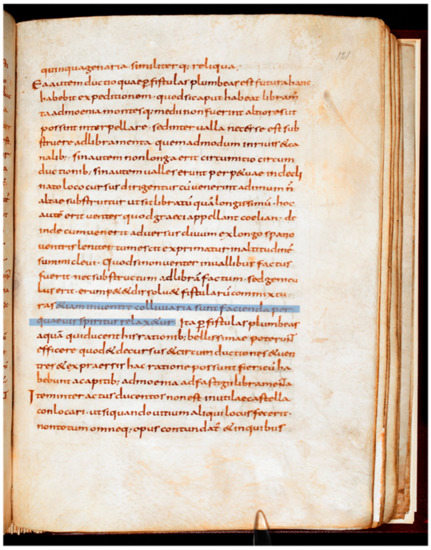 181
quinquagenaria similiter & reliqua.
Ea autem ductio quae p fistulas plumbeas est futura hanc
habebit expeditionem. quodsi caput habeat libram
ta ad moenia montesq medii non fuerint altiores ut
possint interpellare. sed intervalla necesse est sub
struere ad libramenta quemadmodum in rivis & ca
nalib. sin autem non longa erit circumitio circum
ductionib. sin autem valles erunt perpetuae in decli
nato loco cursus dirigentur cu venerint ad imum n
altae substruitur ut sit libratu qua longissimu. hoc
aute erit venter quod graeci appellant coelian. de
inde cum venerit adversus clivum ex longo spatio
ventris leniter tumescit exprimatur in altitudine
summi clivi. Quodsi non venter in vallibus factus
fuerit. nec substructum ad libra factum. sed genicu
lus erit. erumpet & dissolvet fistularu commixtu
ras etiam in ventre colluviaria sunt facienda per
quae vis spiritus relaxetur. Ita p fistulas plumbeas
aqua qui ducent his rationib. bellissimae poterunt
efficere quod & decursus & circumductiones & ven
tres & expraessus hac ratione possunt fieri cu ha
bebunt a capitib; ad moenia ad fastigii libramenta
Item inter actus ducentos non est inutile castella
conlocari. ut si quando vitium aliqui locus fecerit.
non totum omneq; opus contundat & in quibus